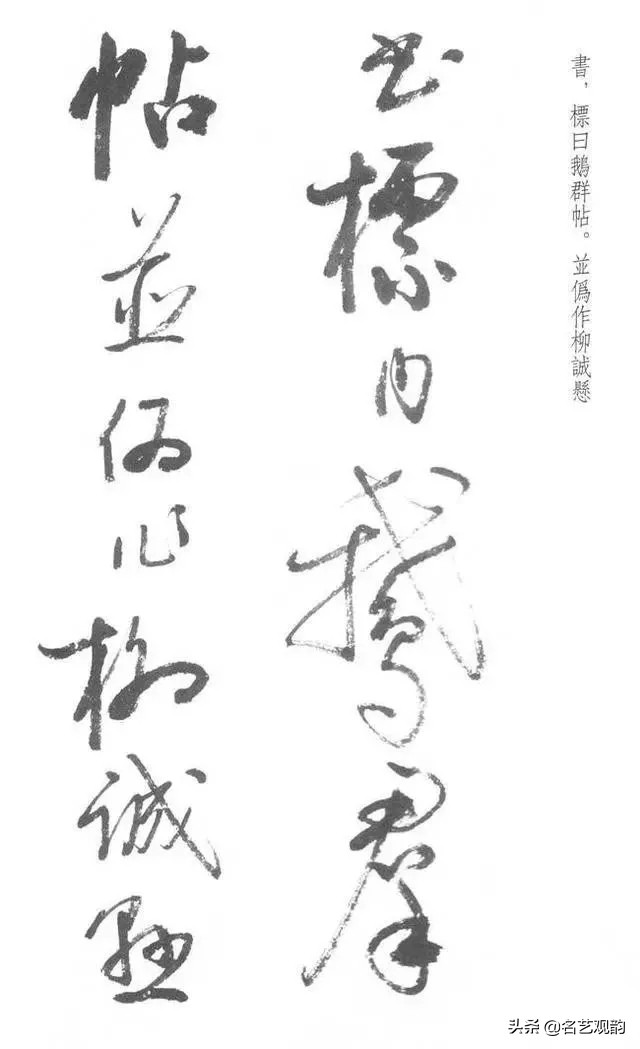 書，標曰鵝群帖。並僞作柳誠懸
书標曰鵝羣
帖並偽作柳誠懸
头条 @名艺观韵